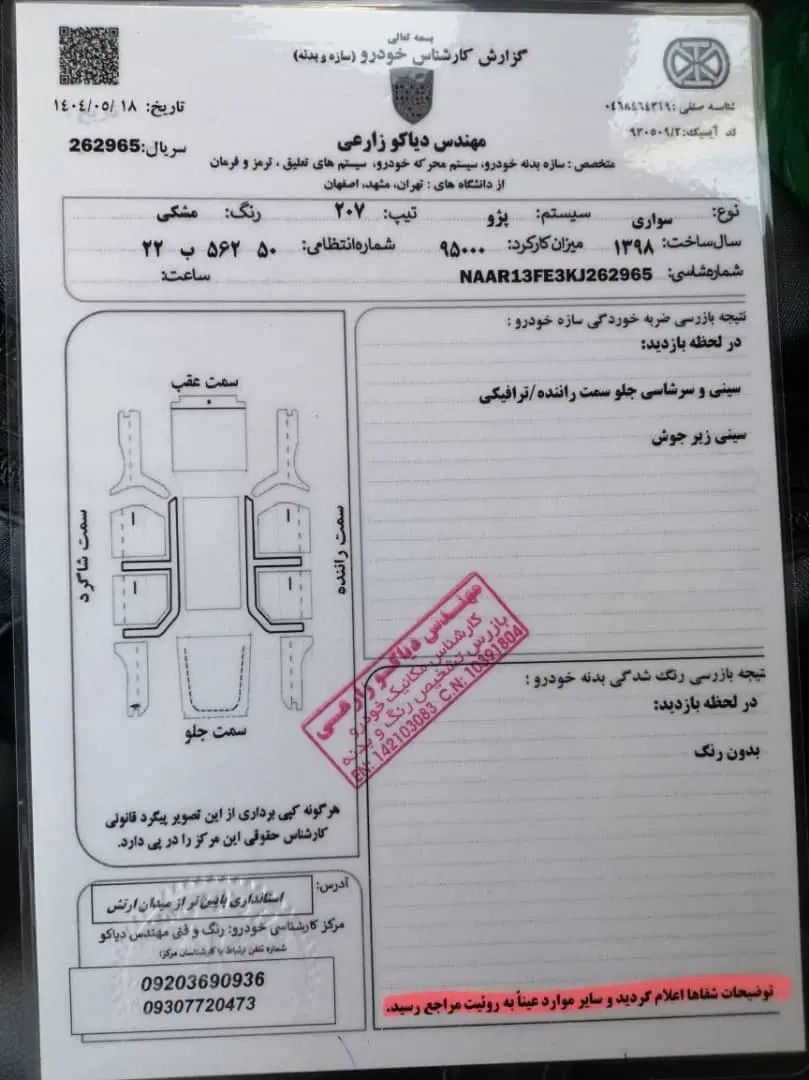 بسمه تعالی
گزارش کارشناس خودرو (سازه و بدنه)
تاریخ: ۱۴۰۴/۰۵/۱۸
شناسه صنفی: ۰۴۶۸۴۶۴۳۱۹
کد آیسیک: ۹۳۰۵۰۹/۲
سریال: 262965
مهندس دیاکو زارعی
متخصص: سازه بدنه خودرو، سیستم محرکه خودرو، سیستم های تعلیق، ترمز و فرمان
از دانشگاه های: تهران، مشهد، اصفهان
نوع: سواری سیستم: پژو تیپ: ۲۰۷ رنگ: مشکی
سال ساخت: ۱۳۹۸ میزان کارکرد: ۹۵۰۰۰ شماره انتظامی: ۵۰ ۵۶۲ ب ۲۲
شماره شاسی: NAAR13FE3KJ262965 ساعت:
نتیجه بازرسی ضربه خوردگی سازه خودرو:
در لحظه بازدید:
سینی و سرشاسی جلو سمت راننده/ترافیکی
سینی زیر جوش
سمت عقب
سمت راننده
سمت شاگرد
سمت جلو
مهندس دیاکو زارعی
کارشناس مکانیک خودرو
بازرس تشخیص رنگ و بدنه
EN: 142103083 C.N: 10391804
نتیجه بازرسی رنگ شدگی بدنه خودرو:
در لحظه بازدید:
بدون رنگ
هرگونه کپی برداری از این تصویر پیگرد قانونی
کارشناس حقوقی این مرکز را در پی دارد.
آدرس:
استانداری پایین تر از میدان ارتش
مرکز کارشناسی خودرو: رنگ و فنی مهندس دیاکو
شماره تلفن ارتباط با کارشناسان مرکز:
09203690936
09307720473
توضیحات شفاها اعلام گردید و سایر موارد عیناً به روئیت مراجع رسید.